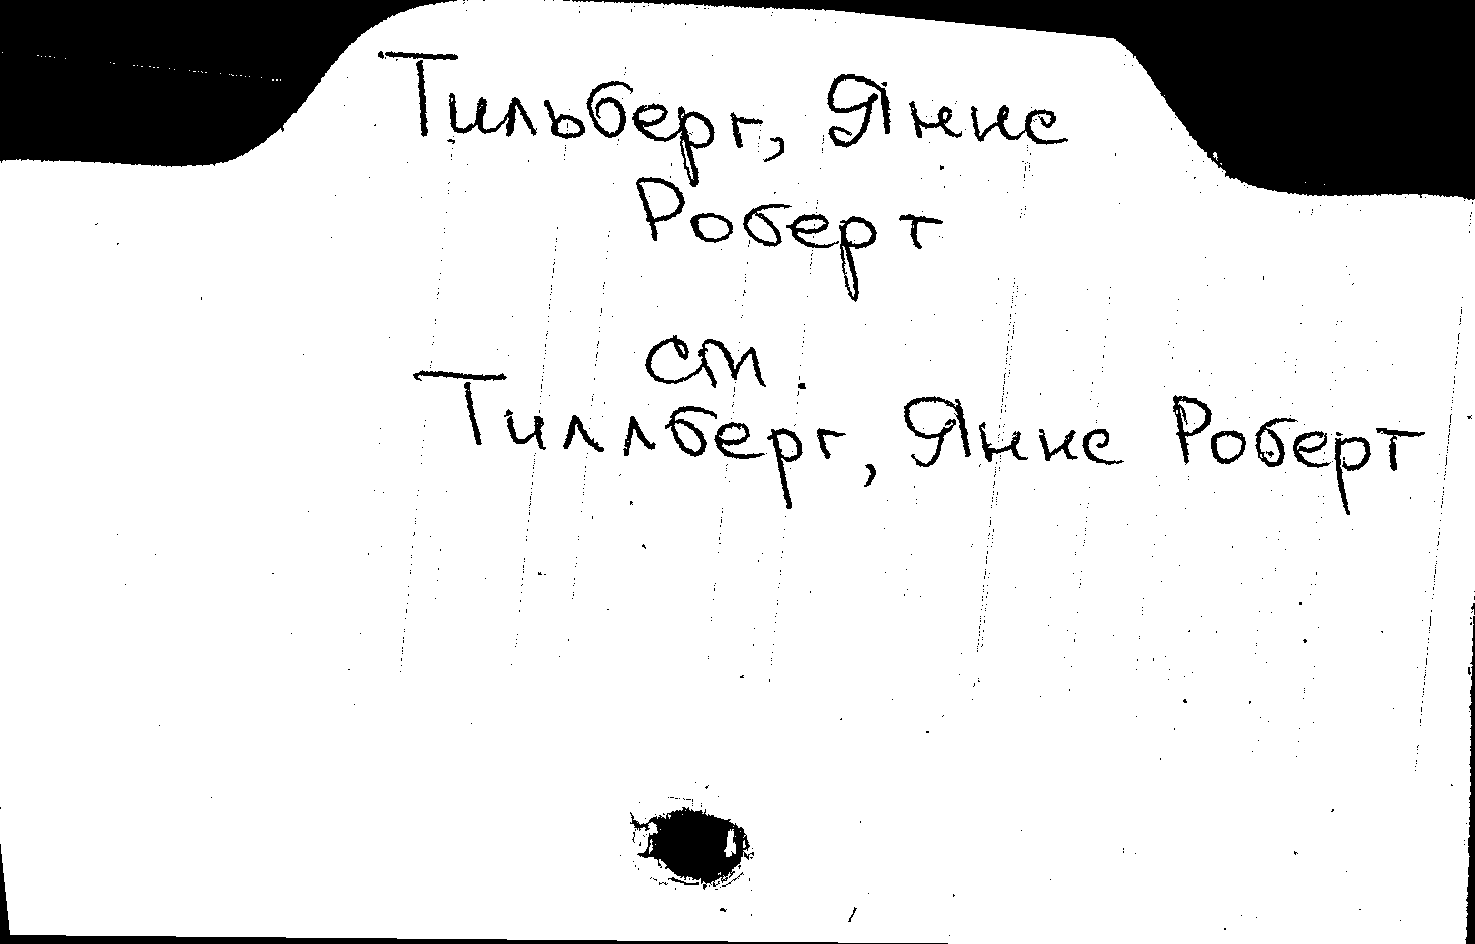 Тильберг, Янис
Роберт
см.
Тиллберг, Янис Роберт